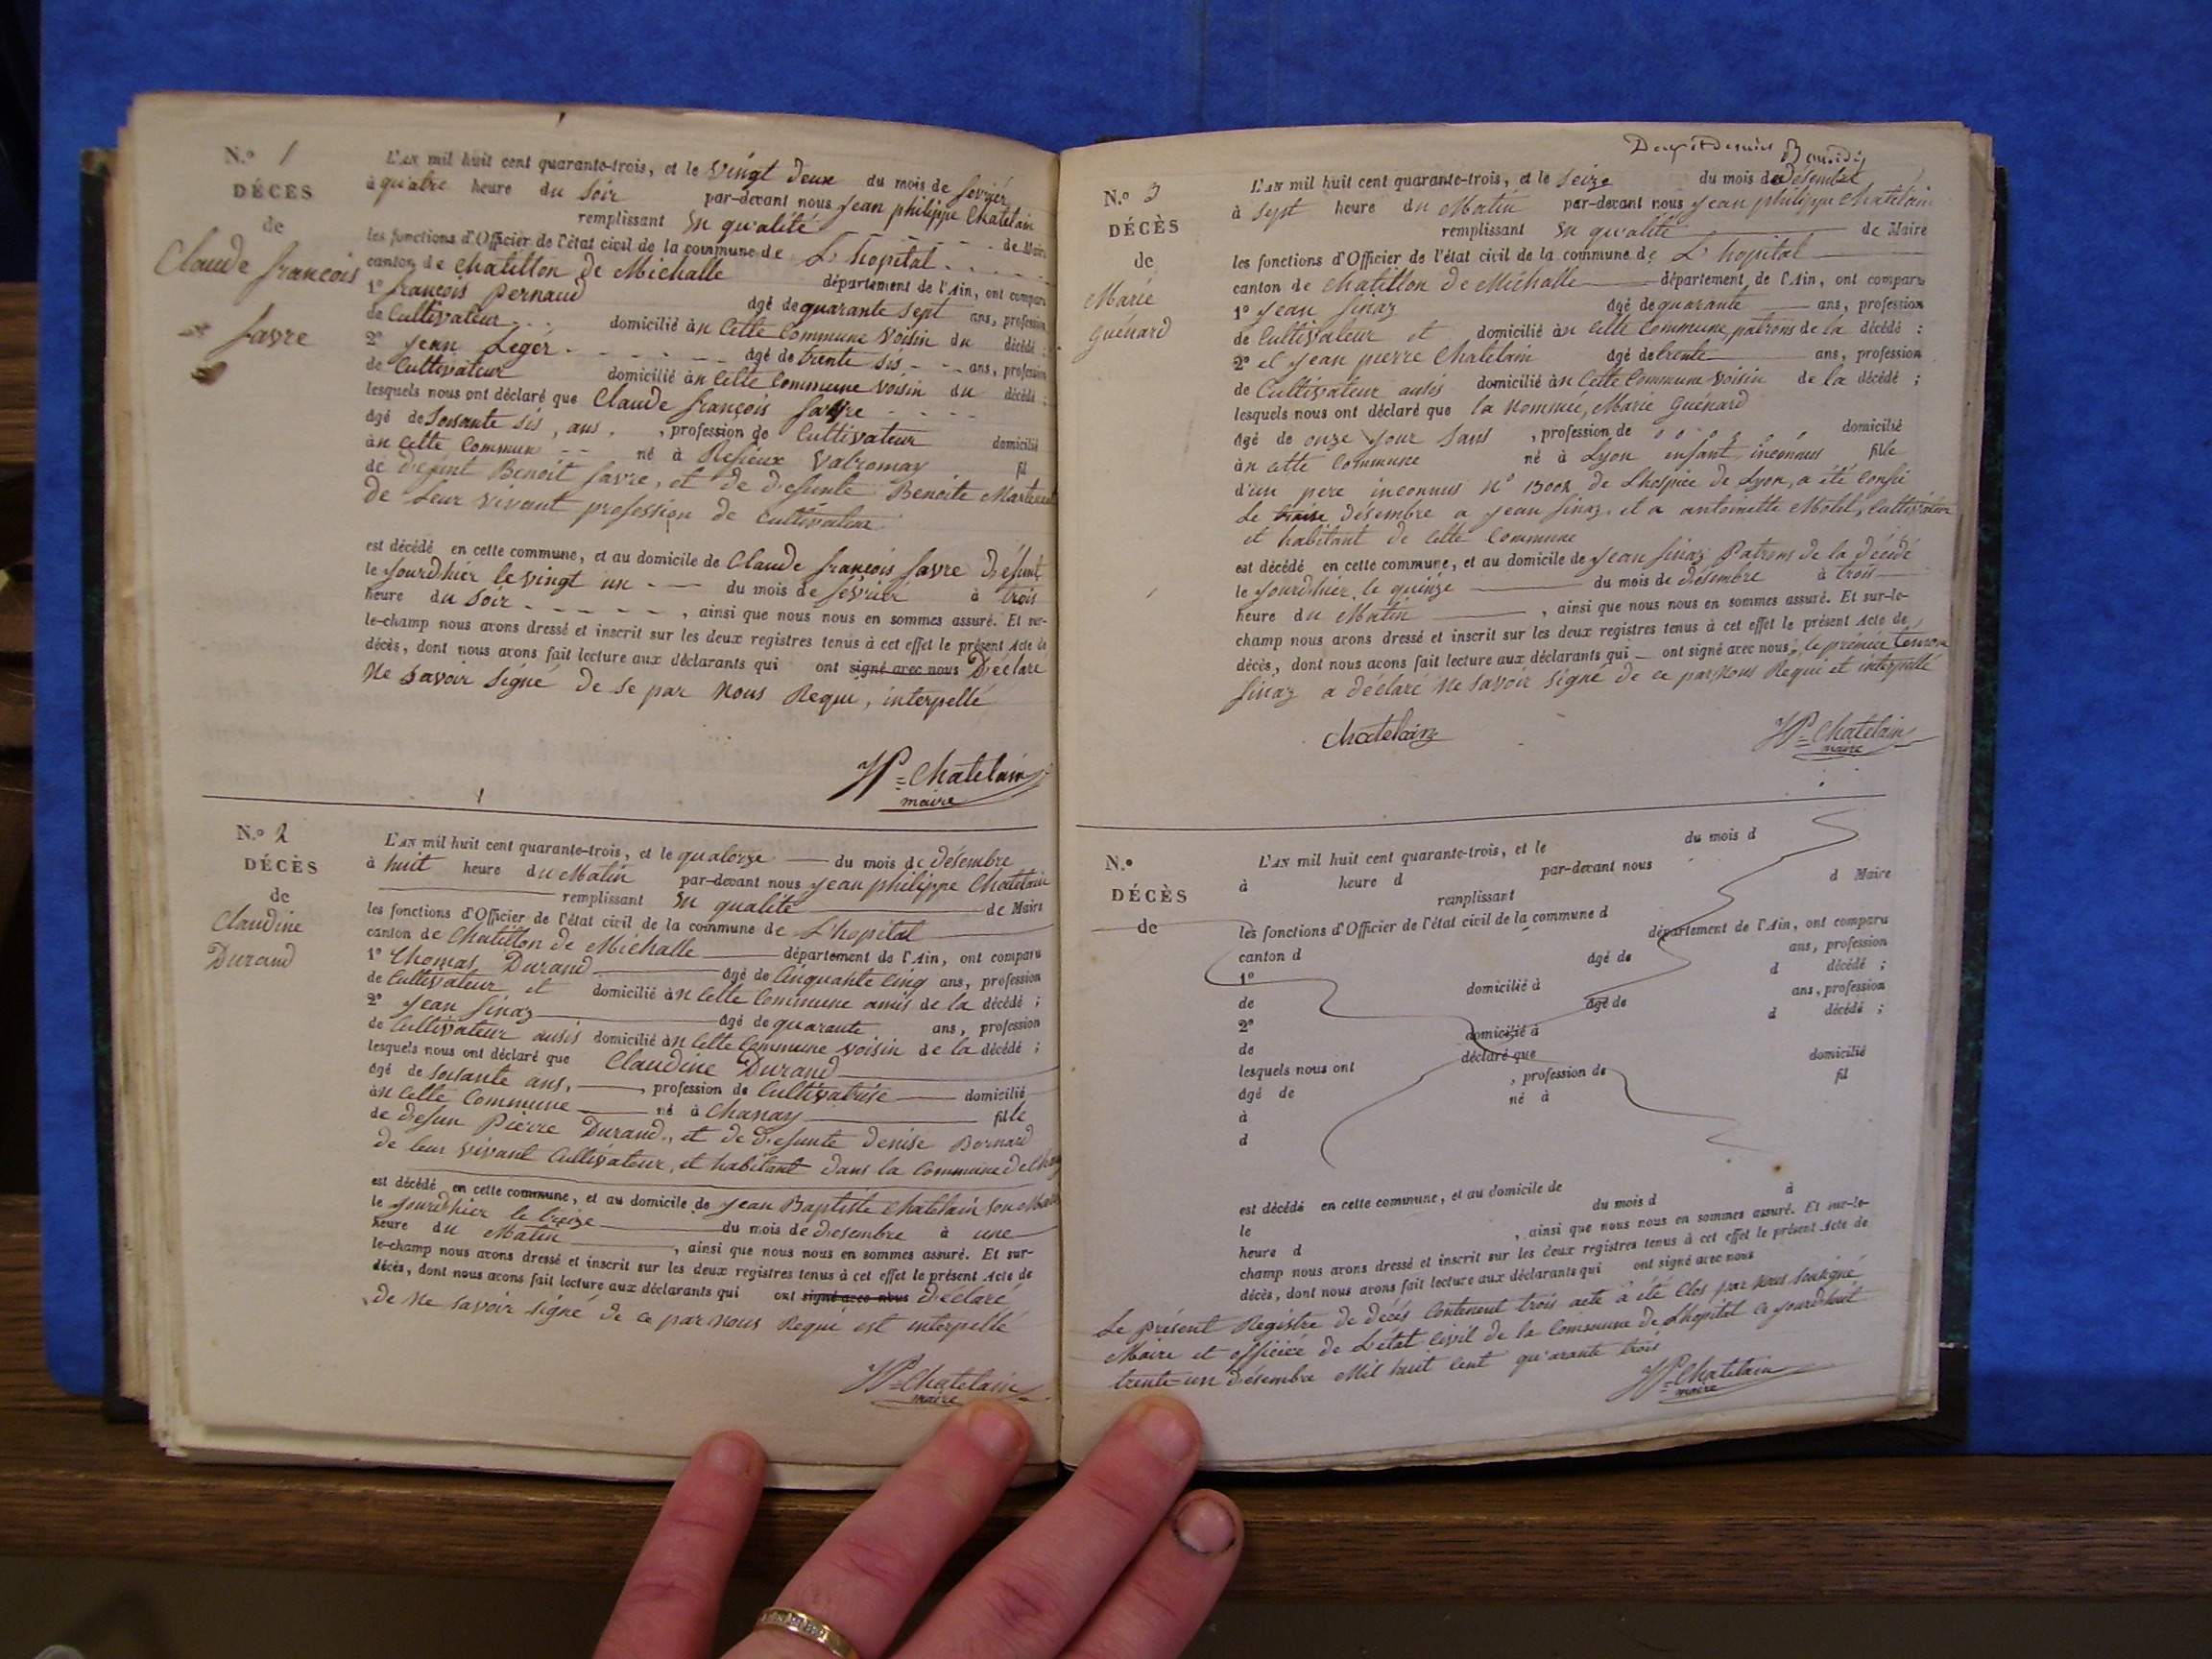 N.° 1
DÉCÈS
de
Claude françois
favre
L'AN mil huit cent quarante-trois, et le vingt deux du mois de fevrier
à qu'atre heure du soir par-devant nous Jean philippe Chatelain
remplissant En qu'alité de Maire
les fonctions d'Officier de l'état civil de la commune de L'hopital
canton de Chatillon de Michalle département de l'Ain, ont comparu
1° françois pernaud âgé de quarante sept ans, profession
de Cultivateur domicilié àn Cette Commune voisin du décédé ;
2° Jean Leger âgé de trente sis ans, profession
de Cultivateur domicilié àn Cette Commune voisin du décédé ;
lesquels nous ont déclaré que Claude françois favre
âgé de Soisante sis, ans, profession de Cultivateur domicilié
àn Cette Commun né à Resieux Valromay fil
de defunt Benoit favre, et de defunte Benoite
de Leur vivant profession de Cultivateur
est décédé en cette commune, et au domicile de Claude françois favre défunt
le Jourdhier le vingt un du mois de février à trois
heure du Soir, ainsi que nous nous en sommes assuré. Et sur-
le-champ nous avons dressé et inscrit sur les deux registres tenus à cet effet le présent Acte de
décès, dont nous avons fait lecture aux déclarants qui ont signé avec nous Déclare
Ne savoir signé de se par Nous Requi, interpellé
JP=Chatelain
maire
N.° 2
DÉCÈS
de
Claudine
Durand
L'AN mil huit cent quarante-trois, et le quatorze du mois de désembre
à huit heure du Matin par-devant nous Jean philippe Chatelain
remplissant En qualité de Maire
les fonctions d'Officier de l'état civil de la commune de L'hopital
canton de Chatillon de Michalle département de l'Ain, ont comparu
1° Thomas Durand âgé de Cinquante Cinq ans, profession
de Cultivateur et domicilié àn Cette Commune amis de la décédé ;
2° Jean Sinaz âgé de quarante ans, profession
de Cultivateur ausis domicilié àn Cette Commune voisin de la décédé ;
lesquels nous ont déclaré que Claudine Durand
âgé de Soisante ans, profession de Cultivatrise domicilié
àn Cette Commune né à Chanay fille
de defun Pierre Durand, et de defunte denise Bornard
de leur vivant Cultivateur, et habitant dans la Commune de
est décédé en cette commune, et au domicile de Jean Baptiste Chatelain son
le Jourdhier le treize du mois de Desembre à une
heure du Matin, ainsi que nous nous en sommes assuré. Et sur-
le-champ nous avons dressé et inscrit sur les deux registres tenus à cet effet le présent Acte de
décès, dont nous avons fait lecture aux déclarants qui ont signé avec nous déclaré
de Ne savoir signé de ce par Nous Requi est interpellé
JP=Chatelain
maire
N.° 3
DÉCÈS
de
Marie
Guénard
L'AN mil huit cent quarante-trois, et le Seize du mois de désembre
à Sept heure du Matin par-devant nous Jean philippe Chatelain
remplissant En qualité de Maire
les fonctions d'Officier de l'état civil de la commune de L'hopital
canton de Chatillon de Michalle département de l'Ain, ont comparu
1° Jean Sinaz âgé de quarante ans, profession
de Cultivateur et domicilié àn Cette Commune patrons de la décédé ;
2° et Jean pierre Chatelain âgé de trente ans, profession
de Cultivateur ausis domicilié àn Cette Commune Voisin de la décédé ;
lesquels nous ont déclaré que la Nommée, Marie Guénard
âgé de onze Jour Sans, profession de domicilié
àn cette Commune né à Lyon enfant inconnus fille
d'un pere inconnus N° 1300 de Lhospice de Lyon, a été Confié
Le traise désembre a Jean Sinaz et a antoinette Motel, Cultivateur
et habitant de Cette Commune
est décédé en cette commune, et au domicile de Jean Sinaz Patrons de la Décédé
le Jourdhier le quinze du mois de Désembre à trois
heure du Matin, ainsi que nous nous en sommes assuré. Et sur-le-
champ nous avons dressé et inscrit sur les deux registres tenus à cet effet le présent Acte de
décès, dont nous avons fait lecture aux déclarants qui ont signé avec nous, le prémier temoin
Sinaz a déclaré Ne savoir signé de ce par Nous Requi et interpellé
Chatelain
JP=Chatelain
maire
N.°
DÉCÈS
de
L'AN mil huit cent quarante-trois, et le du mois d
à heure d par-devant nous
remplissant d Maire
les fonctions d'Officier de l'état civil de la commune d
canton d département de l'Ain, ont comparu
1° âgé de ans, profession
de domicilié à d décédé ;
2° âgé de ans, profession
de domicilié à d décédé ;
lesquels nous ont déclaré que
âgé de , profession de domicilié
à né à fil
d
est décédé en cette commune, et au domicile de
le du mois d à
heure d , ainsi que nous nous en sommes assuré. Et sur-le-
champ nous avons dressé et inscrit sur les deux registres tenus à cet effet le présent Acte de
décès, dont nous avons fait lecture aux déclarants qui ont signé avec nous
Le présent Registre de décés Contenent trois acte a été Clos par Nous Sousigné
Maire et officicé de L'état Civil de la Commune de Lhopital ce Jourdhuit
trente=un désembre Mil huit Cent qu'arante trois
JP=Chatelain
maire